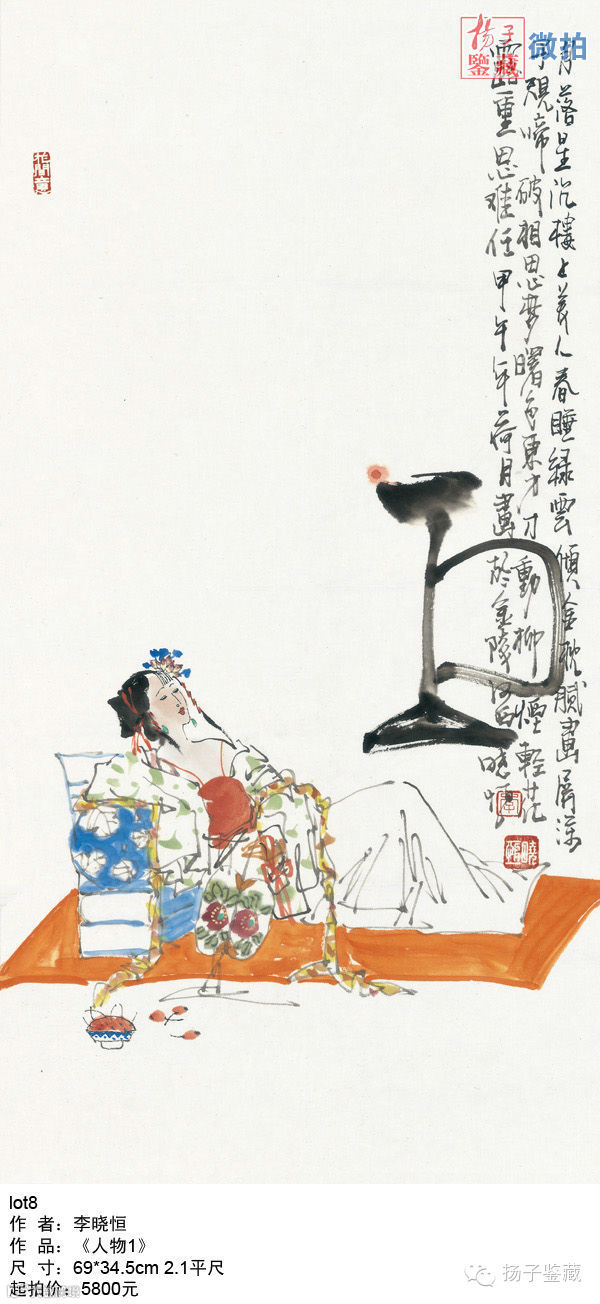 扬子
鑒藏
微拍
月落星沉樓上美人春睡緑雲傾金枕膩畫屏深
子規啼破相思夢曙色東方才動柳煙輕花
露重思难任甲午年荷月畫於金陵河西曉恒
lot8
作 者：李晓恒
作 品：《人物1》
尺 寸：69*34.5cm 2.1平尺
起拍价：5800元
扬子鉴藏